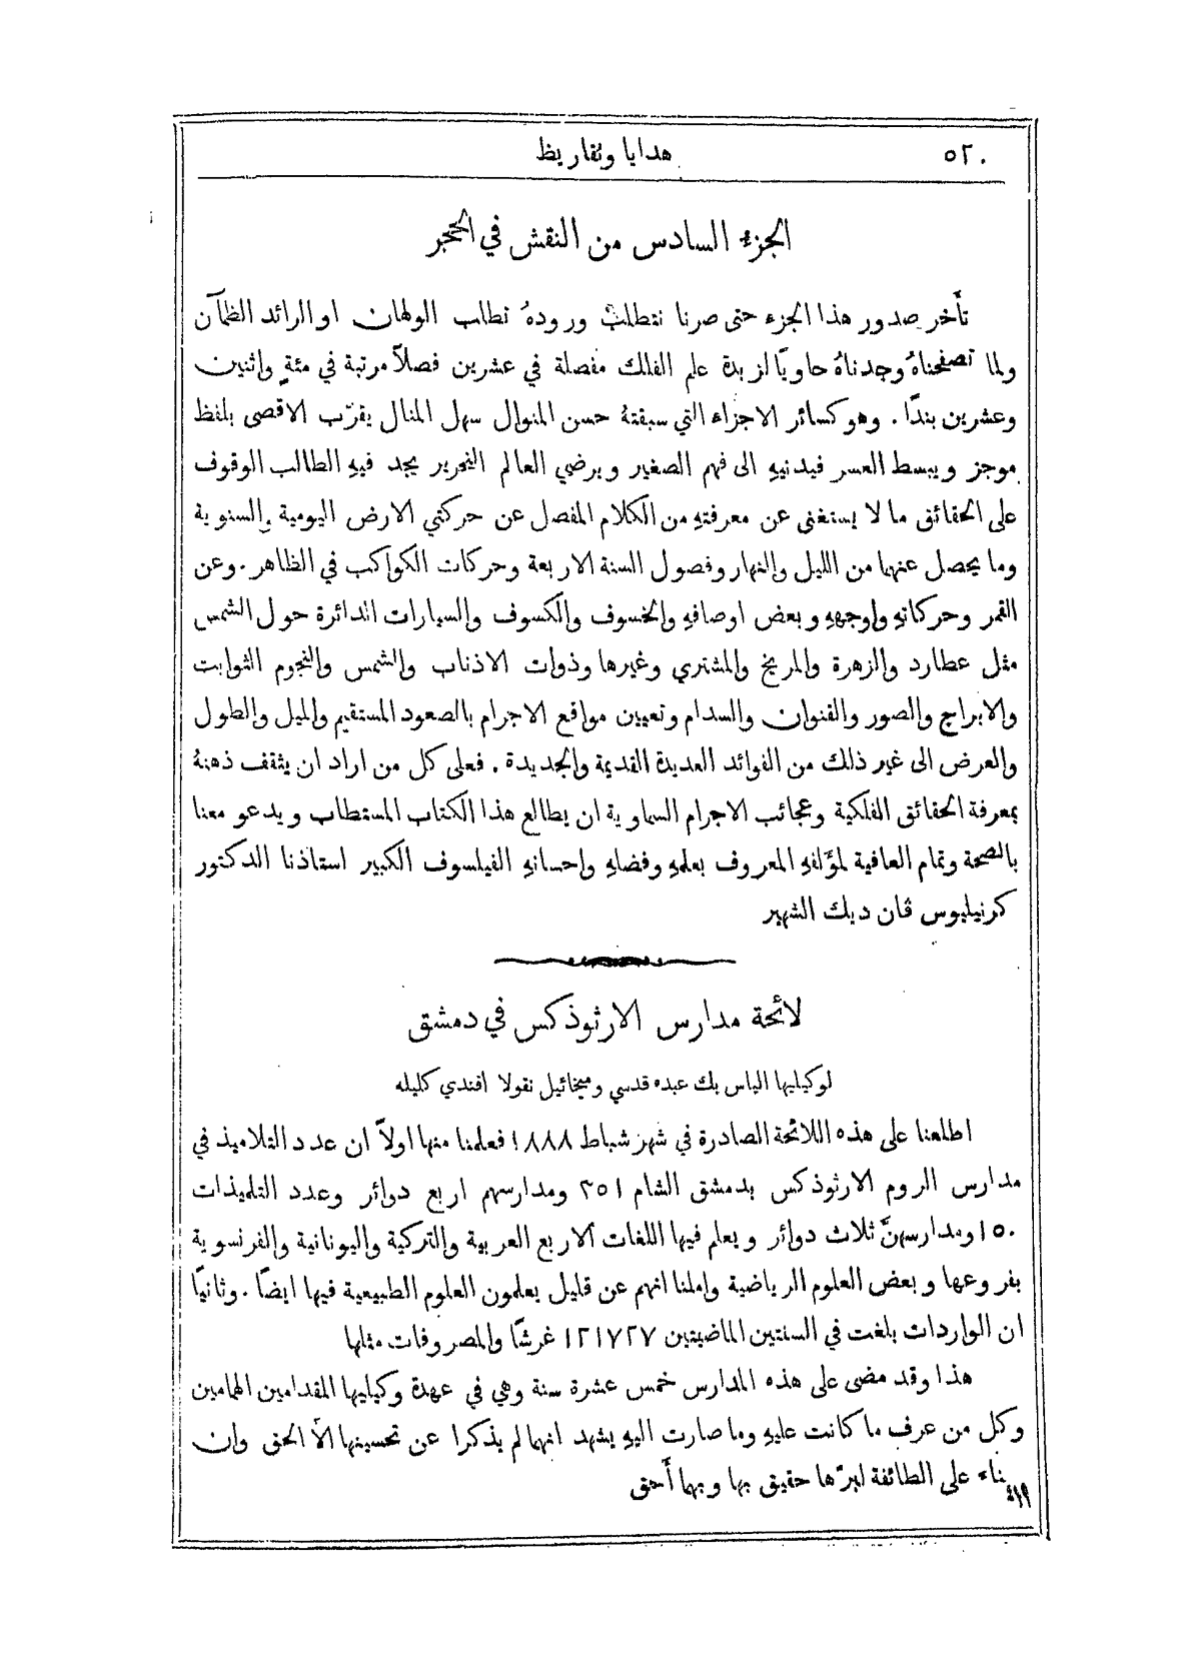 ٥٢٠ هدايا وتقاريظ
الجزء السادس من النقش في الحجر
تأخر صدور هذا الجزء حتى صرنا نتطلب ورودهُ تطلب الولهان او الرائد الظمآن
ولما تصفحناهُ وجدناهُ حاويًا لزبدة علم الفلك مفصلة في عشرين فصلاً مرتبة في مئةٍ واثنين
وعشرين بندًا . وهو كسائر الاجزاء التي سبقتهُ حسن المنوال سهل المنال يقرّب الاقصى بلفظ
موجز ويبسط العسر فيدنيهِ الى فهم الصغير ويرضي العالم النحرير يجد فيهِ الطالب الوقوف
على الحقائق ما لا يستغنى عن معرفتهِ من الكلام المفصل عن حركتي الارض اليومية والسنوية
وما يحصل عنهما من الليل والنهار وفصول السنة الاربعة وحركات الكواكب في الظاهر . وعن
القمر وحركاتهِ واوجههِ وبعض اوصافهِ والخسوف والكسوف والسيارات الدائرة حول الشمس
مثل عطارد والزهرة والمريخ والمشتري وغيرها وذوات الاذناب والشمس والنجوم الثوابت
والابراج والصور والقنوان والسدام وتعيين مواقع الاجرام بالصعود المستقيم والميل والطول
والعرض الى غير ذلك من الفوائد العديدة القديمة والجديدة . فعلى كل من اراد ان يثقف ذهنهُ
بمعرفة الحقائق الفلكية وعجائب الاجرام السماوية ان يطالع هذا الكتاب المستطاب ويدعو معنا
بالصحة وتمام العافية لمؤَلفهِ المعروف بعلمهِ وفضلهِ واحسانهِ الفيلسوف الكبير استاذنا الدكتور
كرنيليوس ڤان ديك الشهير
لائحة مدارس الارثوذكس في دمشق
لوكيليها الياس بك عبده قدسي وميخائيل نقولا افندي كليله
اطلعنا على هذه اللائحة الصادرة في شهر شباط ١٨٨٨ فعلمنا منها اولاً ان عدد التلاميذ في
مدارس الروم الارثوذكس بدمشق الشام ٣٥١ ومدارسهم اربع دوائر وعدد التلميذات
١٥٠ ومدارسهنَّ ثلاث دوائر ويعلم فيها اللغات الاربع العربية والتركية واليونانية والفرنسوية
بفروعها وبعض العلوم الرياضية واملنا انهم عن قليل يعلمون العلوم الطبيعية فيها ايضًا . وثانيًا
ان الواردات بلغت في السنتين الماضيتين ١٢١٧٢٧ غرشًا والمصروفات مثلها
هذا وقد مضى على هذه المدارس خمس عشرة سنة وهي في عهدة وكيليها المقدامين الهمامين
وكل من عرف ما كانت عليهِ وما صارت اليهِ يشهد انهما لم يذكرا عن تحسينها الاَّ الحق وان
بناء على الطائفة لبرّها حقيق بها وبهما أحق